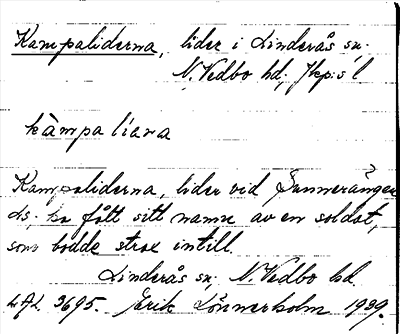 Kampaliderna, lider i Linderås sn.
N. Vedbo hd; Jkp:s l
kàmpalíana
Kampaliderna, lider vid Sunnerången
ds. ha fått sitt namn av en soldat,
som bodde strax intill.
Linderås sn, N. Vedbo hd.
3695. Erik Lönnerholm 1939.